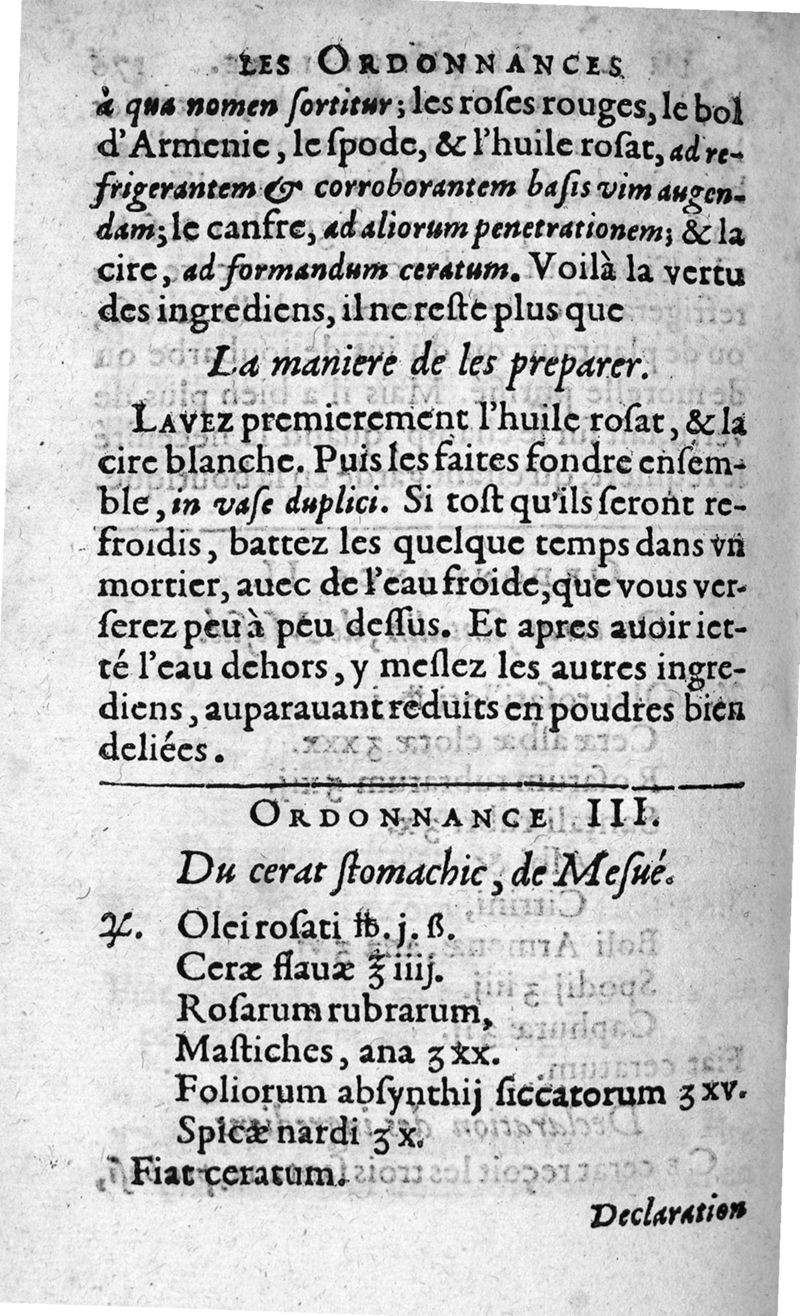 LES ORDONNANCES
à qua nomen ſortitur; les roſes rouges, le bol
d'Armenie, le ſpode, & l'huile roſat, ad re-
frigerantem & corroborantem baſis vim augen-
dam; le canfre, ad aliorum penetrationem; & la
cire, ad formandum ceratum. Voilà la vertu
des ingrediens, il ne reſte plus que
La maniere de les preparer.
LAVEZ premierement l'huile roſat, & la
cire blanche. Puis les faites fondre enſem-
ble, in vaſe duplici. Si toſt qu'ils ſeront re-
froidis, battez les quelque temps dans vn
mortier, auec de l'eau froide, que vous ver-
ſerez peu à peu deſſus. Et apres auoir iet-
té l'eau dehors, y meſlez les autres ingre-
diens, auparauant reduits en poudres bien
deliées.
ORDONNANCE III.
Du cerat ſtomachic, de Meſué.
℞. Olei roſati ℔. j. ß.
Ceræ flauæ ℥ iiij.
Roſarum rubrarum,
Maſtiches, ana ʒ xx.
Foliorum abſynthij ſiccatorum ʒ xv.
Spicæ nardi ʒ x.
Fiat ceratum.
Declaration